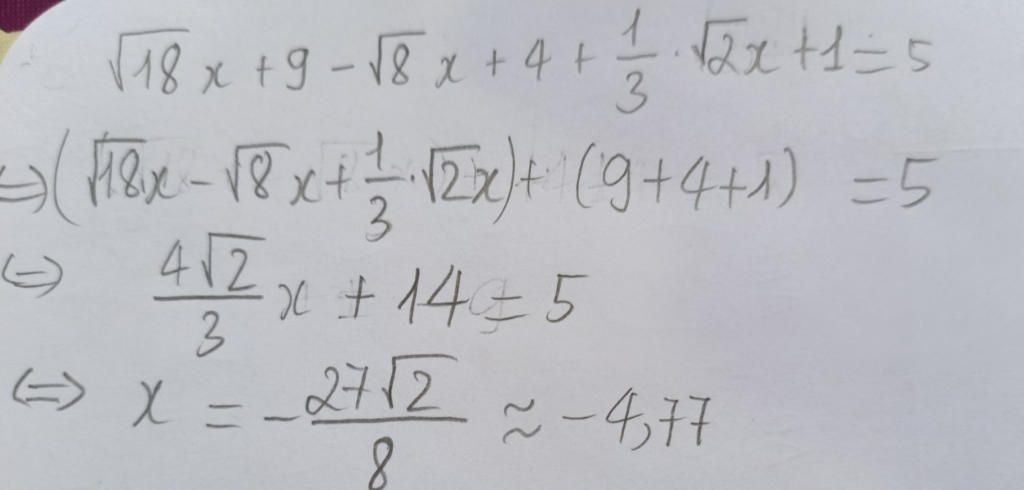 √18 x + 9 - √8 x + 4 + 1/3 · √2x + 1 = 5
⇔ (√18x - √8 x + 1/3 · √2x) + (9 + 4 + 1) = 5
⇔ 4√2/3 x + 14 = 5
⇔ x = - 27√2/8 ≈ -4,77